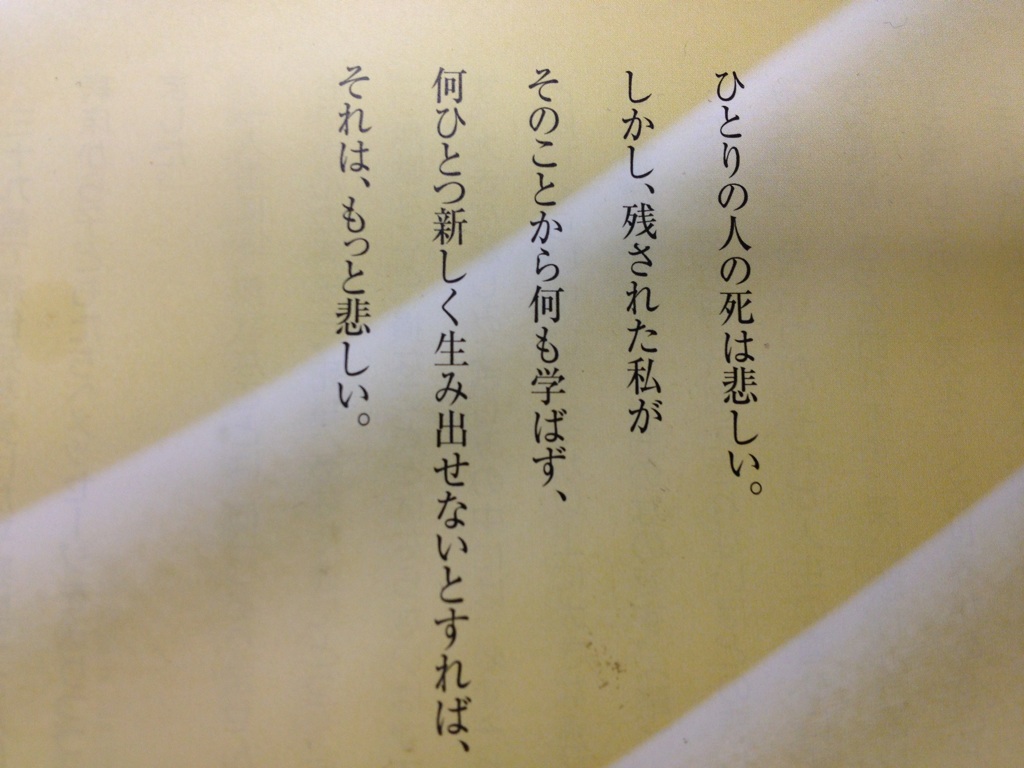 ひとりの人の死は悲しい。
しかし、残された私が
そのことから何も学ばず、
何ひとつ新しく生み出せないとすれば、
それは、もっと悲しい。